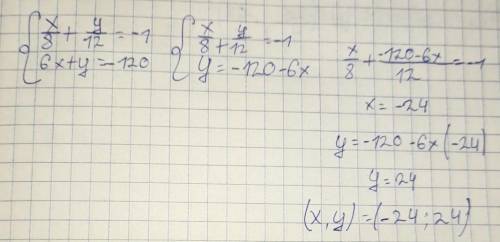 x/8 + y/12 = -1
6x+y=-120
x/8 + y/12 = -1
y=-120-6x
x/8 + -120-6x/12 = -1
x=-24
y=-120-6x(-24)
y=24
(x,y)=(-24;24)